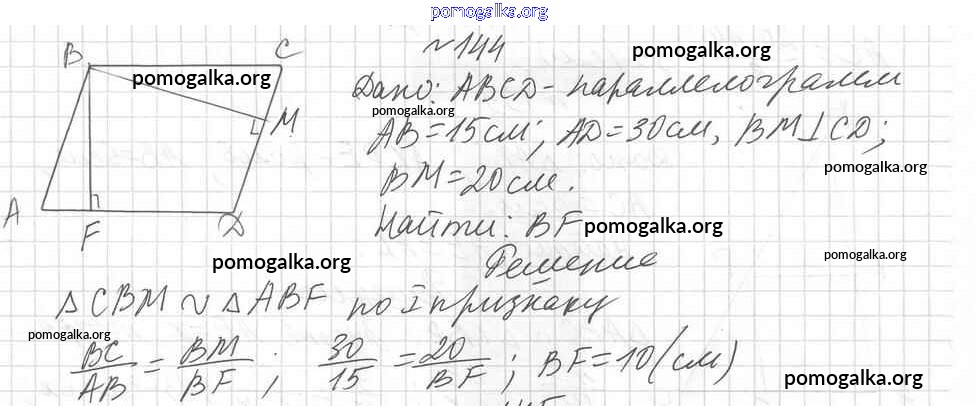 pomogalka.org
№144
pomogalka.org
B C
pomogalka.org
Дано: ABCD - параллелограмм
pomogalka.org
M
AB = 15 см; AD = 30 см, BM ⊥ CD;
pomogalka.org
BM = 20 см.
A F D
Найти: BF
pomogalka.org
pomogalka.org
Решение
pomogalka.org
△ CBM ∼ △ ABF по I признаку
pomogalka.org
BC/AB = BM/BF ; 30/15 = 20/BF ; BF = 10 (см)
pomogalka.org